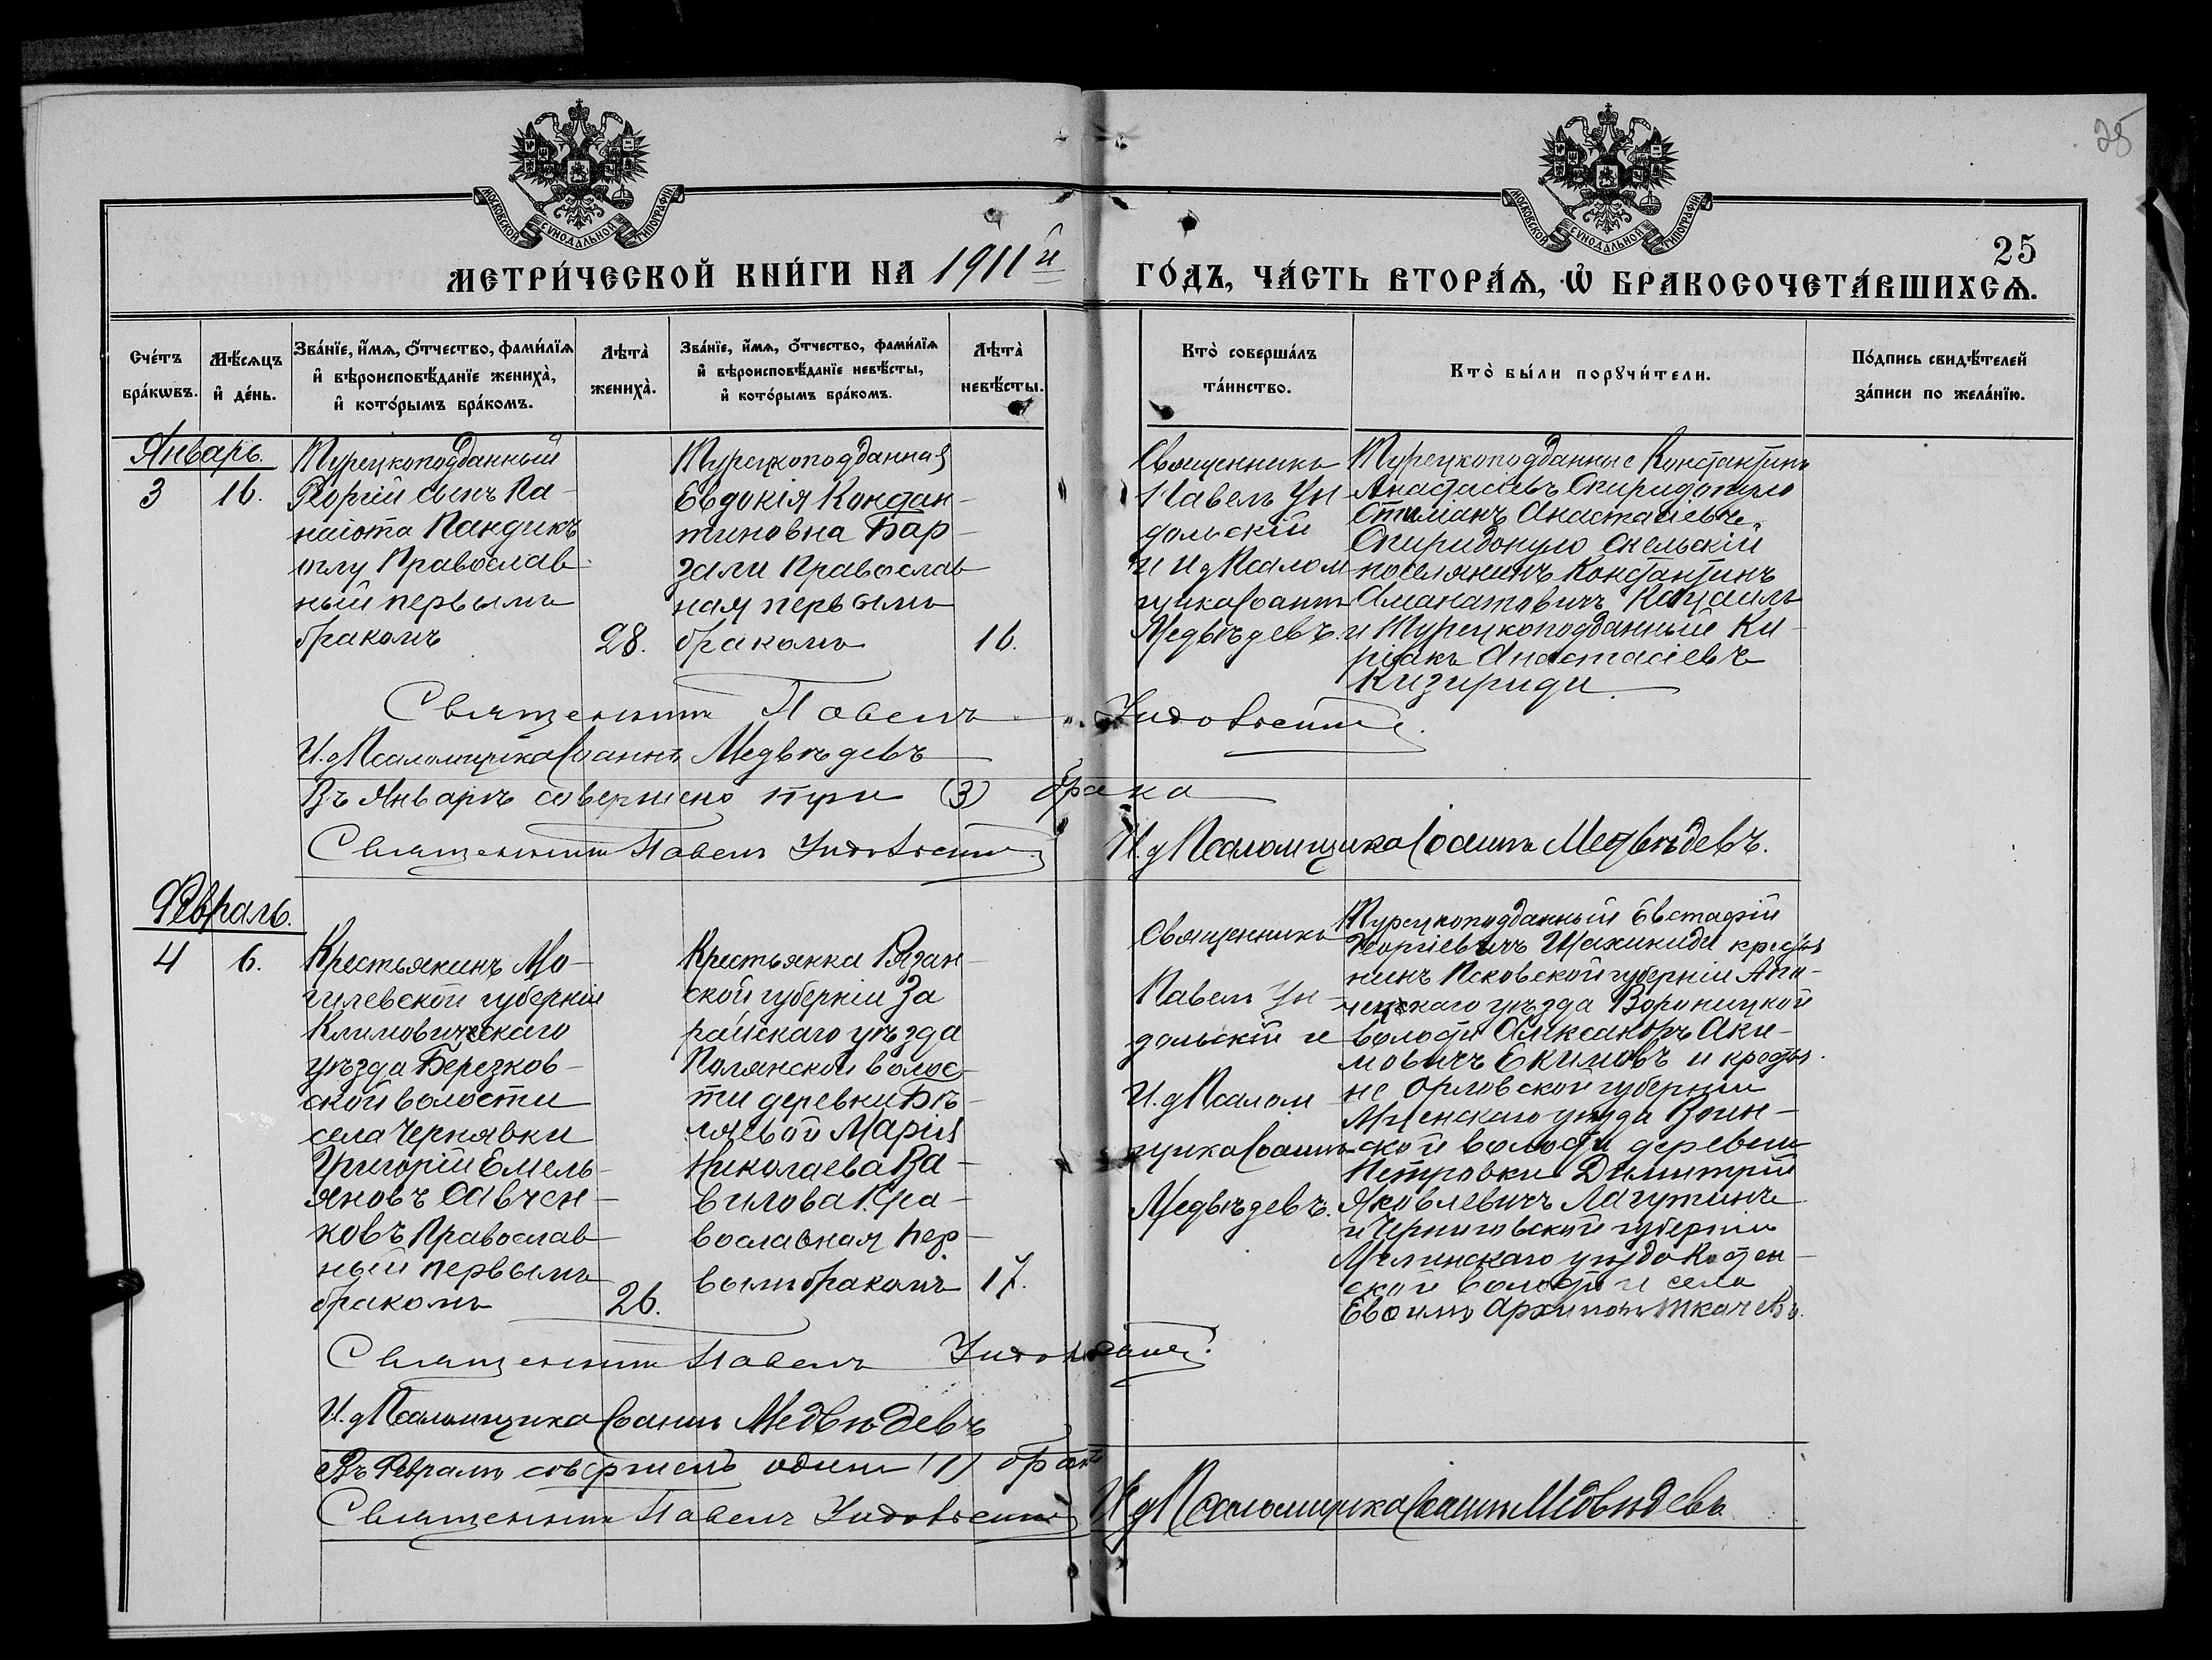 25
МОСКОВСКОЙ СУНОДАЛЬНОЙ ТИПОГРАФІИ
МОСКОВСКОЙ СУНОДАЛЬНОЙ ТИПОГРАФІИ
25
МЕТРИ́ЧЕСКОЙ КНИ́ГИ НА 1911й
ГО́ДЪ, ЧА́СТЬ ВТОРА́Ѧ, Ѽ БРАКОСОЧЕТА́ВШИХСѦ.
Сче́тъ
бра́кѡвъ.
Мѣ́сяцъ
и҆ де́нь.
Зва́нїе, и҆́мѧ, ѻ҆́тчество, фами́лїѧ
и҆ вѣроисповѣ́данїе жениха̀,
и҆ кото́рымъ бра́комъ.
Лѣта̀
жениха̀.
Зва́нїе, и҆́мѧ, ѻ҆́тчество, фами́лїѧ
и҆ вѣроисповѣ́данїе невѣ́сты,
и҆ кото́рымъ бра́комъ.
Лѣта̀
невѣ́сты.
Кто̀ соверша́лъ
та́инство.
Кто̀ бы́ли порꙋчи́тели.
По́дпись свидѣ́телей
за́писи по жела́нїю.
Январь.
3
16.
Турецкоподданный
Георгій сынъ Па-
наіота Пандикъ
оглу Православ-
ный первымъ
бракомъ
28.
Турецкоподданная
Евдокія Констан-
тиновна Бар-
зали Православ-
ная первымъ
бракомъ
16.
Священникъ
Павелъ Ун-
дольскій
и И д Псалом
щика Іоаннъ
Медвѣдевъ.
Турецкоподданные Константинъ
Анастасіевъ Спиридопуло
Анастасіевъ
Спиридопуло
поселянинъ Константинъ
Аманатовичъ
и Турецкоподданный Ки-
ріакъ Анастасіевъ
Кизириди.
Священникъ Павелъ Ундольскій.
И. д Псаломщика Іоаннъ Медвѣдевъ
Въ Январѣ совершено три (3) брака
Священникъ Павелъ Ундольскій
И. д Псаломщика Іоаннъ Медвѣдевъ.
Февраль.
4
6.
Крестьянинъ Мо-
гилевской губерніи
Климовическаго
уѣзда Березков-
ской волости
села Чернявки
Григорій Емель-
яновъ Савчен-
ковъ Православ-
ный первымъ
бракомъ
26.
Крестьянка Рязан-
ской губерніи За
райскаго уѣзда
Полянской волос-
ти деревни Бѣ-
ляевой Марія
Николаева Ва-
вилова Пра-
вославная пер-
вымъ бракомъ
17.
Священникъ
Павелъ Ун-
дольскій и
И. д Псалом
щика Іоаннъ
Медвѣдевъ.
Турецкоподданный Евстафій
Георгіевичъ Шахиниди крестья
нинъ Псковской губерніи Апо-
чецкаго уѣзда Вороницкой
волости Александръ Аки-
мовичъ Екимовъ и крестья-
не Орловской губерніи
Мценскаго уѣзда Воин-
ской волости деревни
Петровки Димитрій
Яковлевичъ Лагутинъ
и Черниговской губерніи
Мглинскаго уѣзда Костен-
ской волости села
Архиповъ Ткачевъ.
Священникъ Павелъ Ундольскій.
И. д Псаломщика Іоаннъ Медвѣдевъ
Въ Февралѣ совершенъ одинъ (1) бракъ
Священникъ Павелъ Ундольскій
И д Псаломщика Іоаннъ Медвѣдевъ